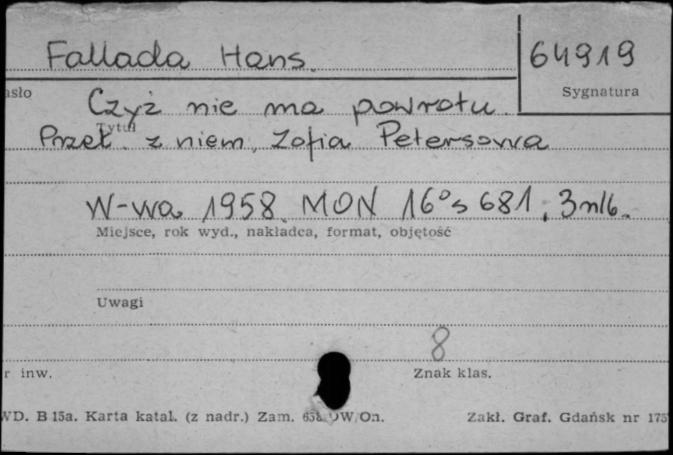 Fallada Hans. 64919
Sygnatura
Czyż nie ma powrotu.
Tytuł
Przeł. z niem. Zofia Petersowa
W-wa 1958. MON 16° s 681, 3 nlb.
Miejsce, rok wyd., nakładca, format, objętość
Uwagi
8
inw. Znak klas.
B 15a. Karta katal. (z nadr.) Zam. Zakł. Graf. Gdańsk nr 175